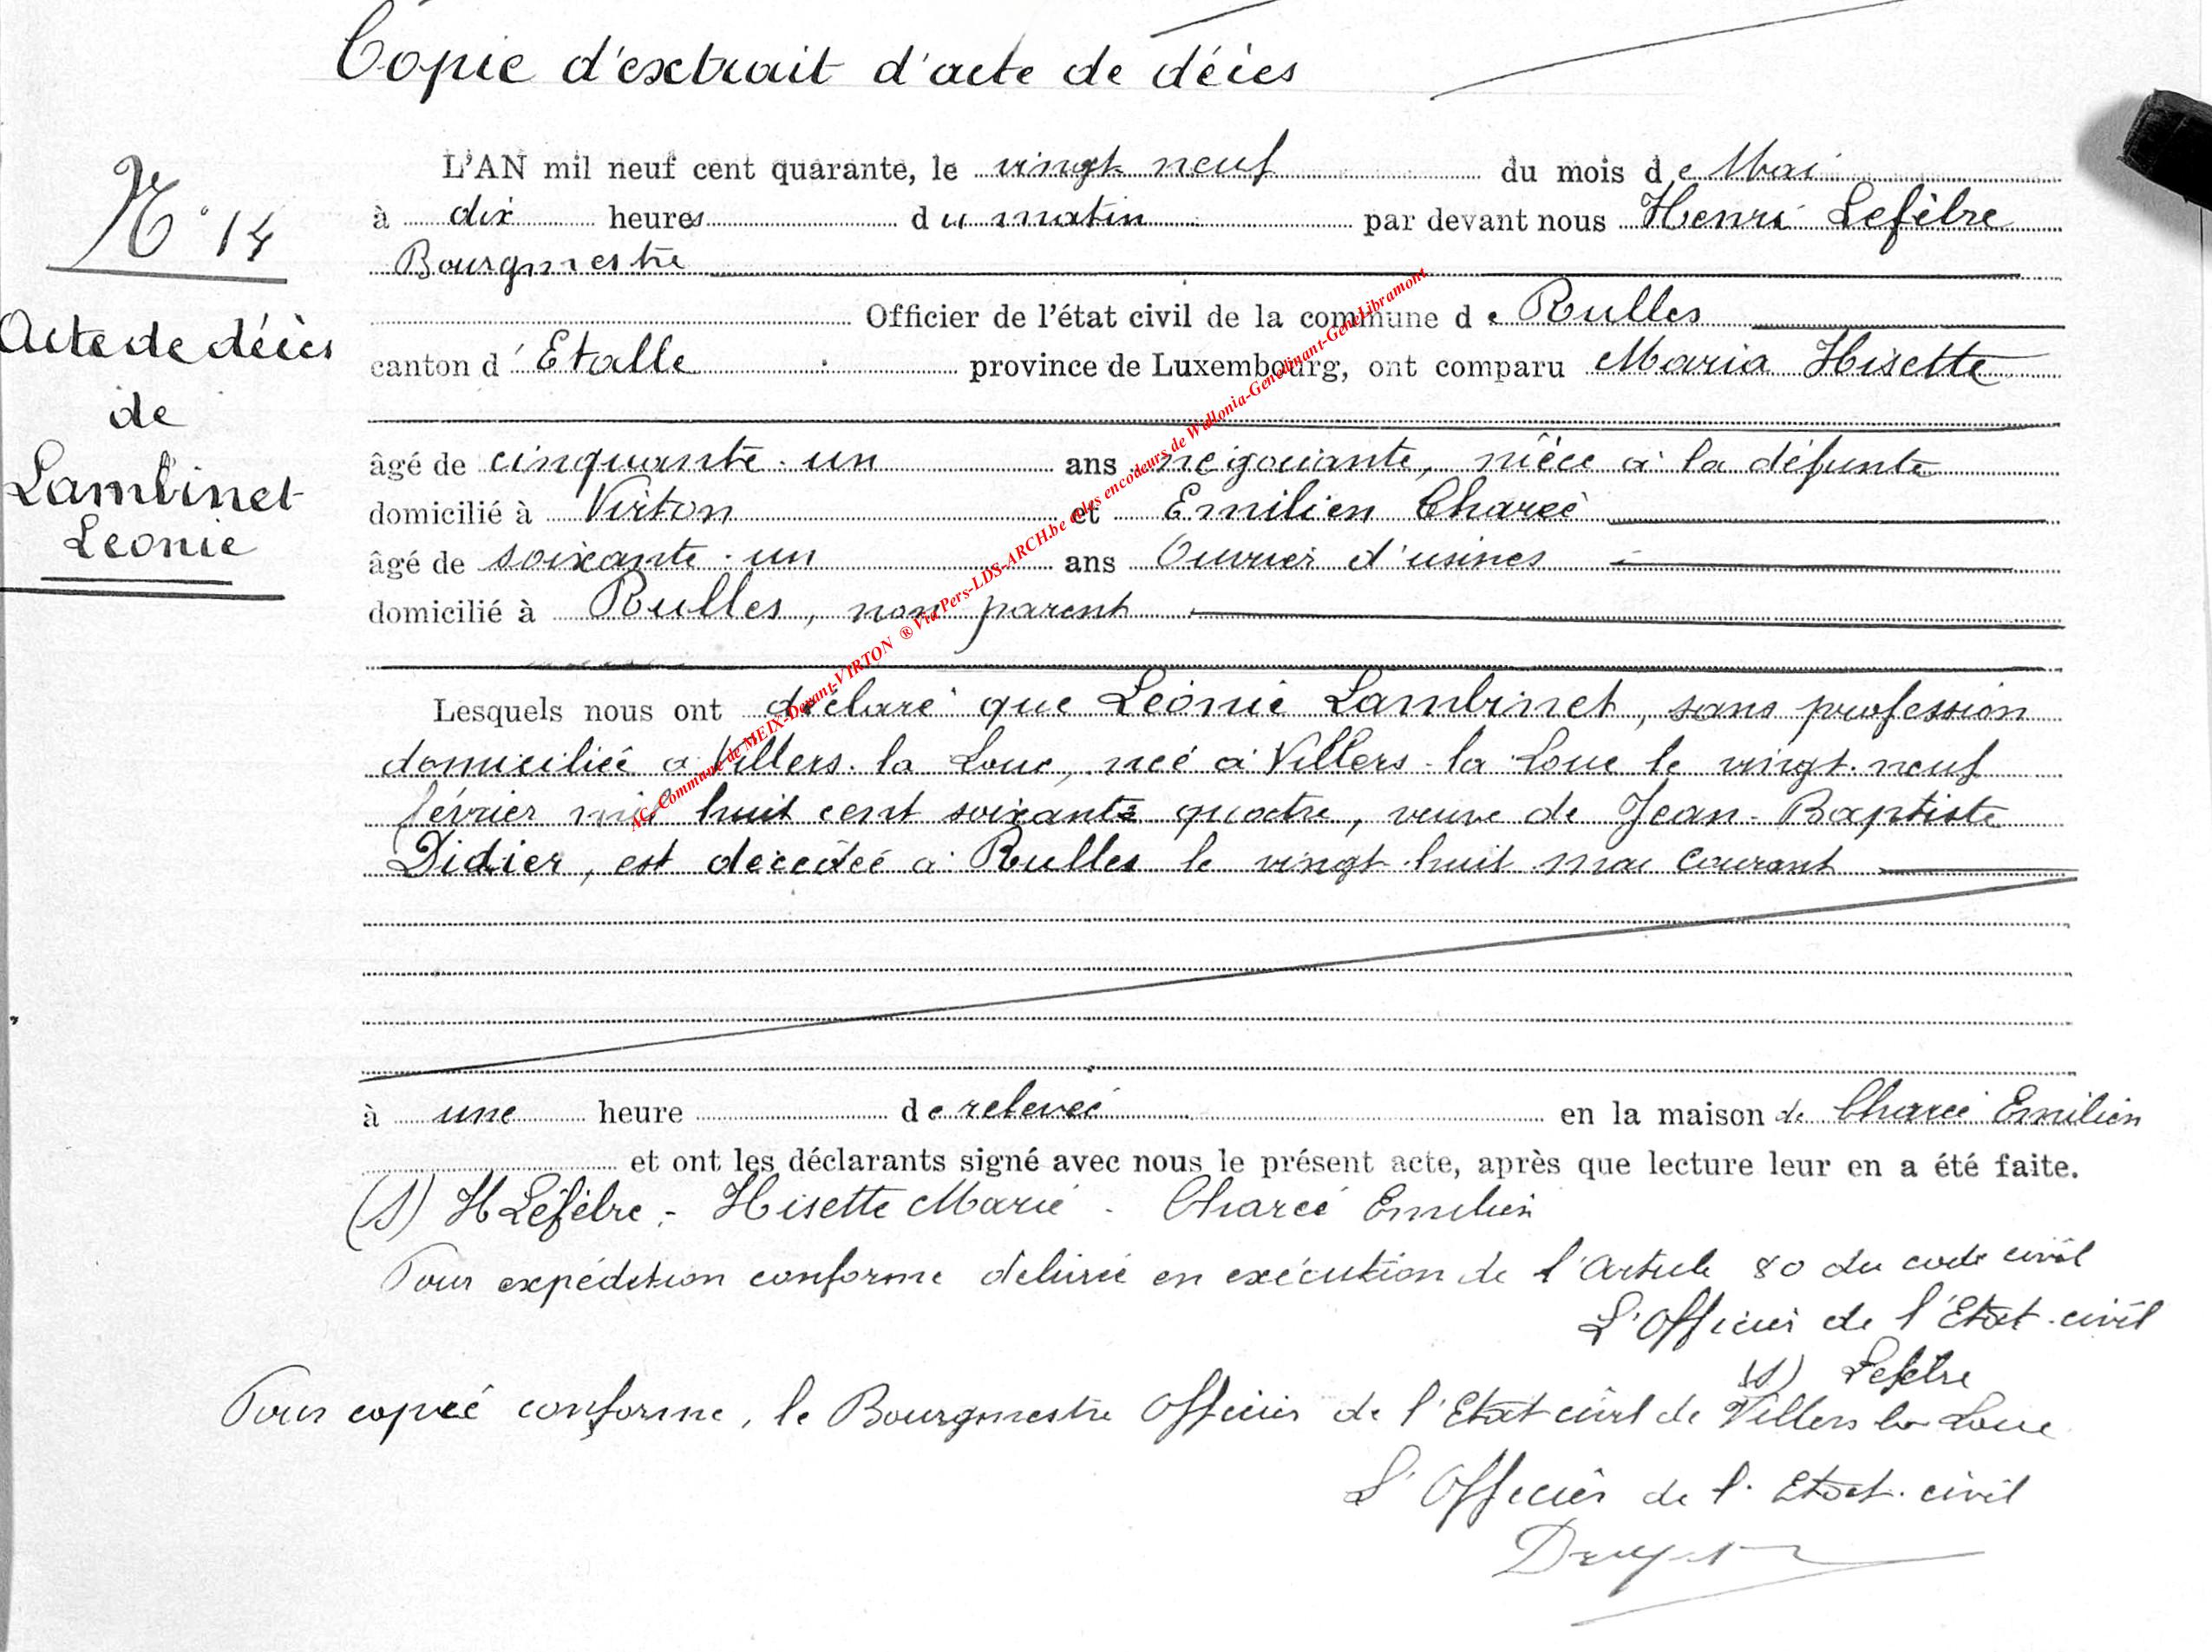 Copie d'extrait d'acte de décès
N° 14
Acte de décès
de
Lambinet
Leonie
L'AN mil neuf cent quarante, le vingt neuf du mois de Mai
à dix heures du matin par devant nous Henri Lefèbre
Bourgmestre
Officier de l'état civil de la commune de Rulles
canton d'Etalle province de Luxembourg, ont comparu Maria Hisette
âgé de cinquante-un ans négociante, nièce à la défunte
domicilié à Virton et Emilien Charcé
âgé de soixante-un ans Ouvrier d'usines
domicilié à Rulles, non parent
Lesquels nous ont déclaré que Léonie Lambinet, sans profession
domiciliée à Villers-la-Loue, née à Villers-la-Loue le vingt-neuf
février mil huit cent soixante quatre, veuve de Jean-Baptiste
Didier, est décédée à Rulles le vingt-huit mai courant
à une heure de relevée en la maison de Charcé Emilien
et ont les déclarants signé avec nous le présent acte, après que lecture leur en a été faite.
(S) H Lefèbre - Hisette Marie - Charcé Emilien
Pour expédition conforme délivrée en exécution de l'Article 80 du code civil
L'Officier de l'Etat-civil
(S) Lefèbre
Pour copie conforme, le Bourgmestre Officier de l'Etat civil de Villers la Loue
L'Officier de l'Etat-civil
AC-Commune de MEIX-Devant-VIRTON ® Via Pers-LDS-ARCH.be et les encodeurs de Wallonia-GenDinant-GeneLibramont